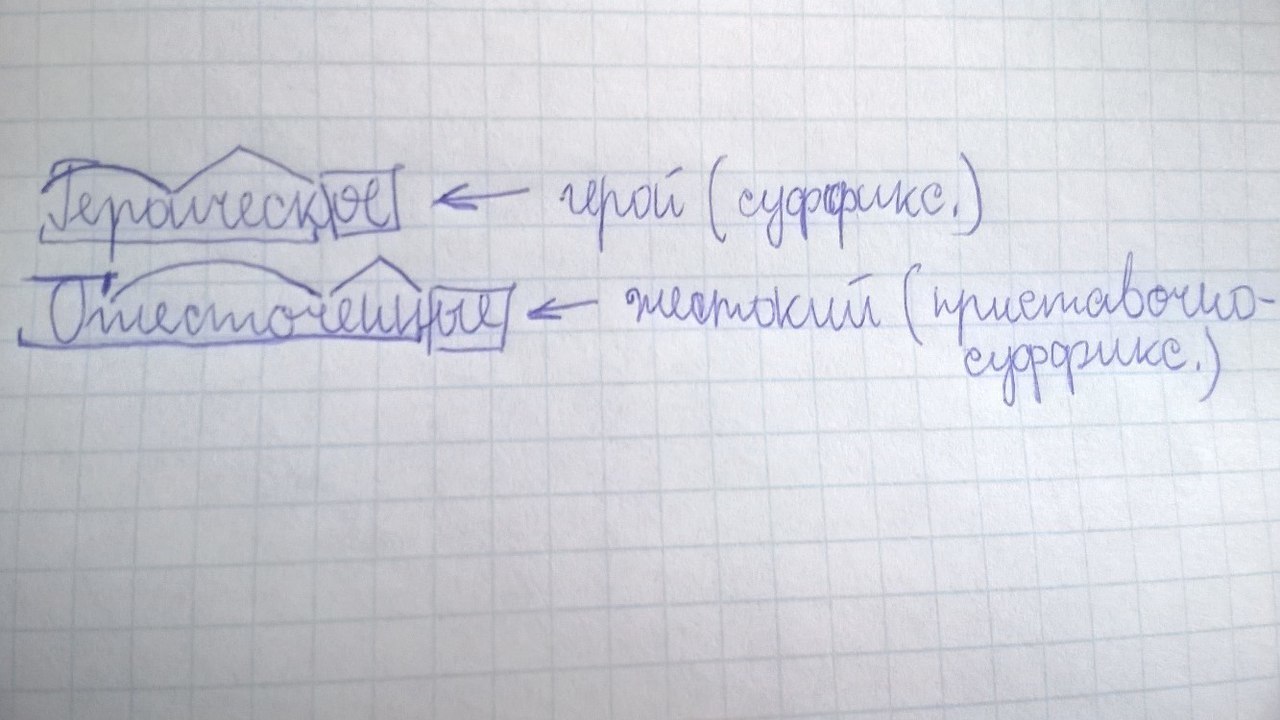 Героическое ← герой (суффикс.)
Ожесточенные ← жестокий (приставочно-
суффикс.)